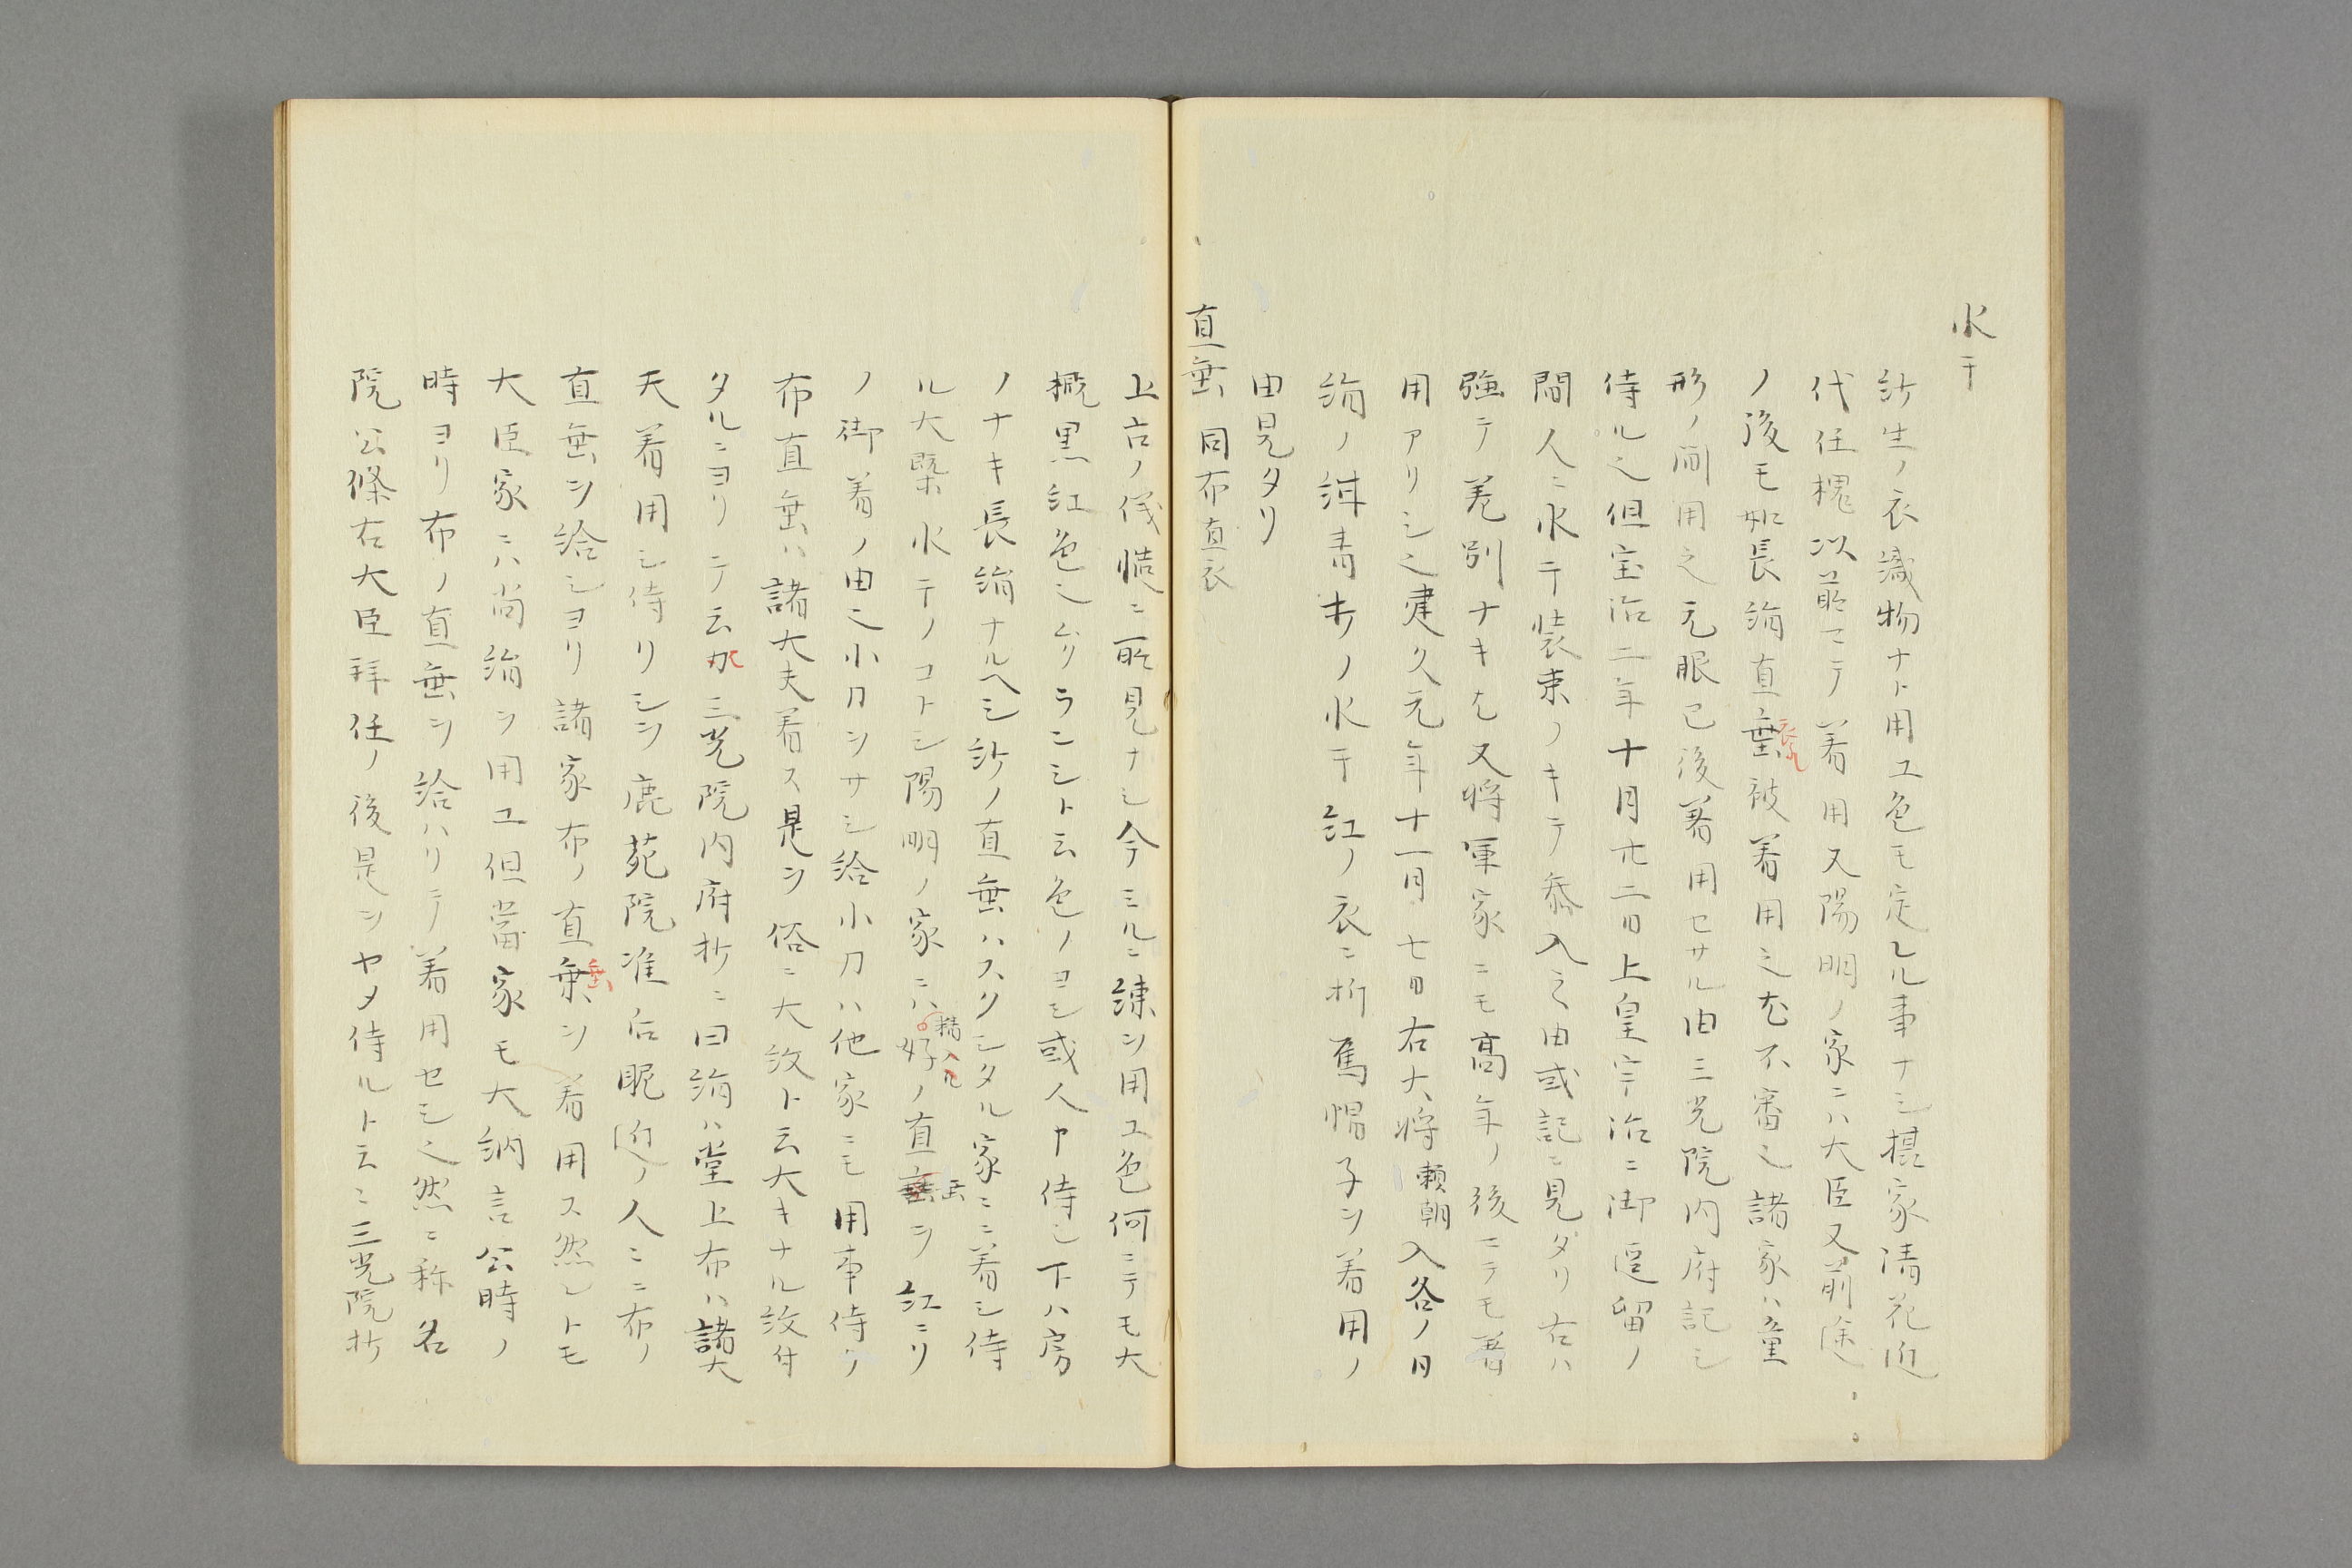 水干
紗生ノ衣織物ナト用ユ色モ定レル事ナシ摂家清花近
代任槐以前ニテ着用又陽明ノ家ニハ大臣又前途
ノ後モ如長絹直垂被着用之尤不審之諸家ハ童
形ノ間用之元服已後着用セサル由三光院内府記シ
侍ル之但宝治二年十月廿二日上皇宇治ニ御逗留ノ
間人ニ水干装束ノキテ参入之由或記ニ見タリ右ハ
強テ差別ナキ尤又将軍家ニモ高年ノ後ニテモ着
用アリシ之建久元年十一月七日右大将頼朝入洛ノ日
絹ノ紺青ホノ水干紅ノ衣ニ折烏帽子ヲ着用ノ
由見タリ
直垂 同布直衣
上古ノ儀慥ニ所見ナシ今ミルニ練ヲ用ユ色何ニテモ大
概黒紅色之ムリラニシト云色ノヨシ或人申侍シ下ハ房
ノナキ長絹ナルヘシ紗ノ直垂ハスクシタル家ニニ着シ侍
ル大槩水干ノコトシ陽明ノ家ニハ精好ノ直垂ヲ紅ニリ
ノ御着ノ由之小刀ヲサシ給小刀ハ他家ニモ用事侍リ
布直垂ハ諸大夫着ス是ヲ俗ニ大紋ト云大キナル紋付
タルニヨリテ云カ三光院内府抄ニ曰絹ハ堂上布ハ諸大
夫着用シ侍リシヲ鹿苑院准后眤近ノ人ニニ布ノ
直垂ヲ給シヨリ諸家布ノ直垂ヲ着用ス然レトモ
大臣家ニハ尚絹ヲ用ユ但當家モ大納言公時ノ
時ヨリ布ノ直垂ヲ給ハリテ着用セシ之然ニ称名
院公條右大臣拝任ノ後是ヲヤメ侍ルト云ニ三光院抄